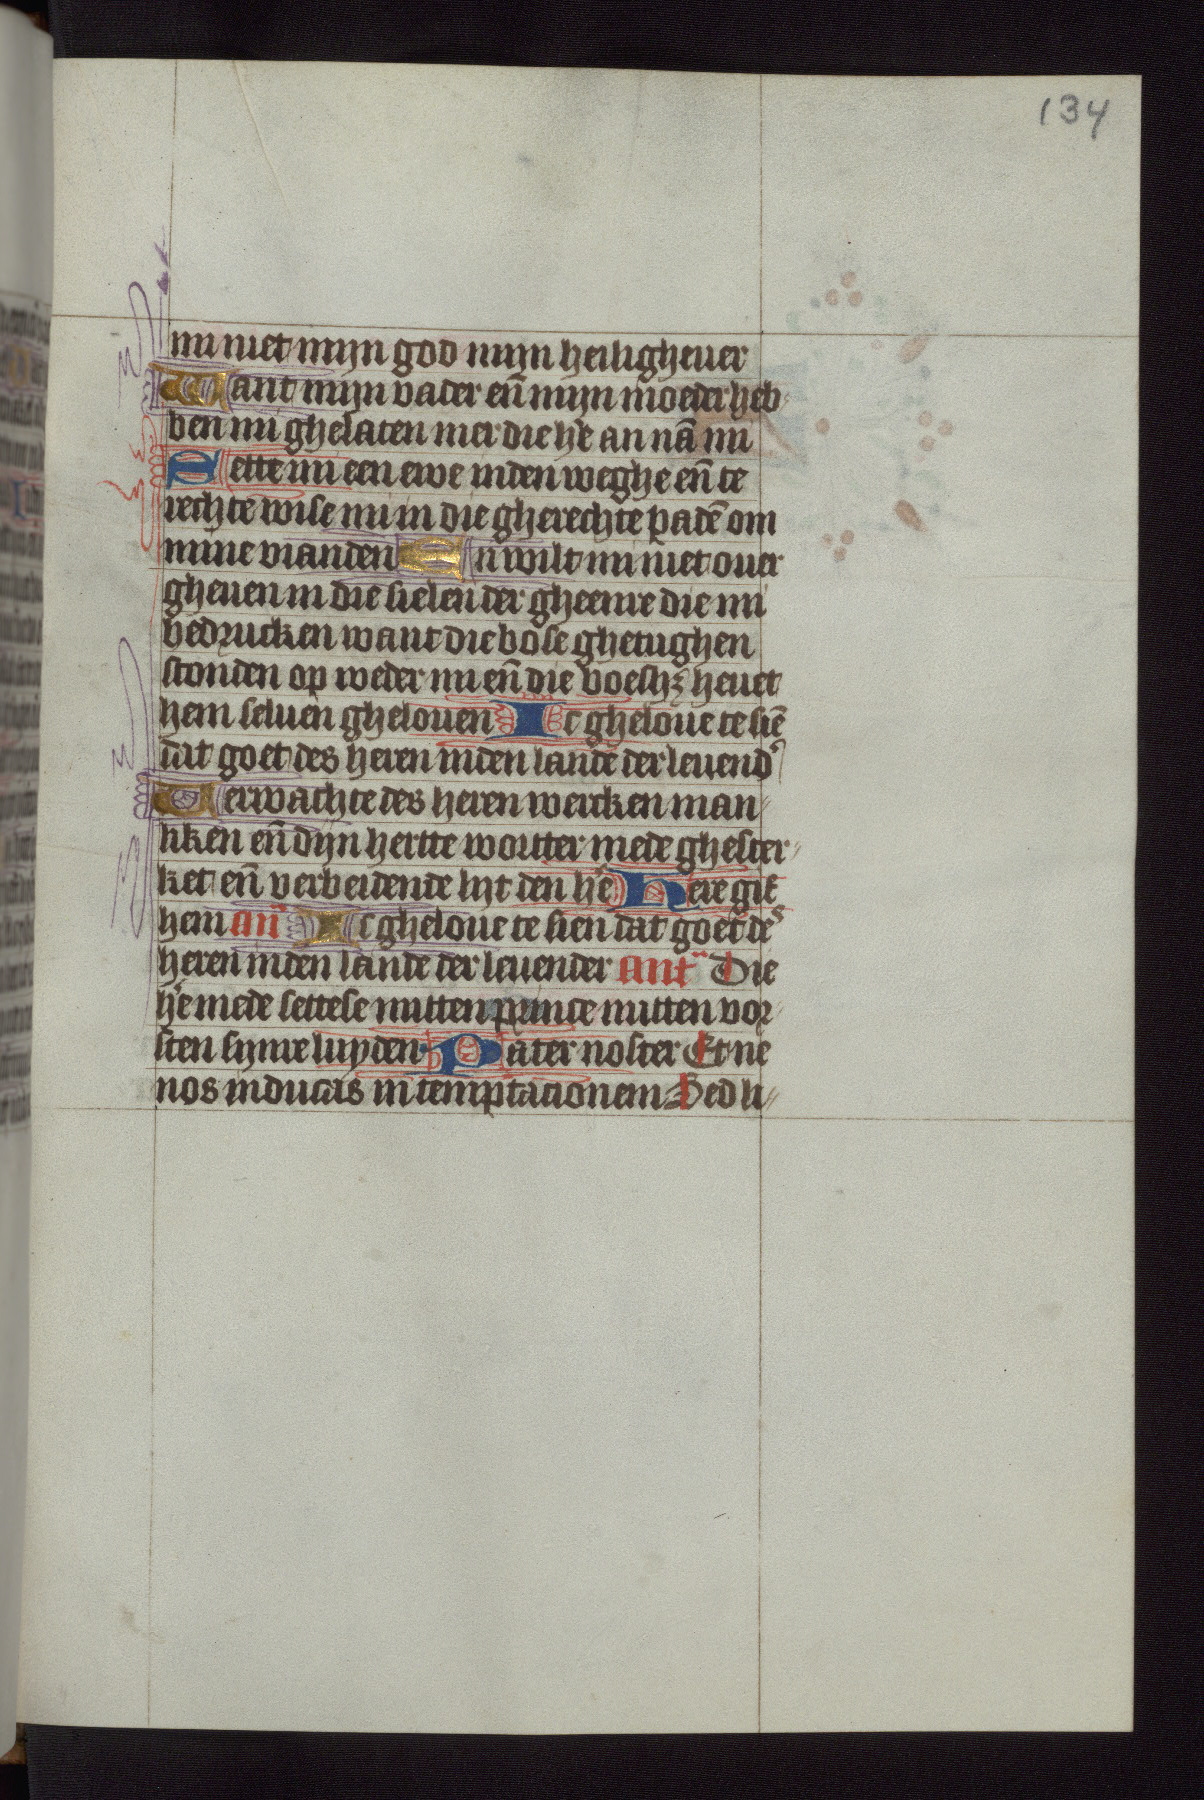 134
mi niet mijn god mijn heiligheuer
Want mijn vader en̄ mijn moeder heb
ben mi ghelaten mer die he an nā mi
Sette mi een ewe inden weghe en̄ te
rechte wise mi in die gherechte padē om
mine vianden En wilt mi niet ouer
gheuen in die sielen der gheenre die mi
bedrucken want die bose ghetughen
stonden op weder mi en̄ die boeshz heuet
hem seluen ghelouen Ic gheloue te siē
dat goet des heren inden lande der leuend
Verwachte des heren wercken man
liken en̄ dijn hertte wortter mede ghester
ket en̄ verbeidende lijt den he Here gif
hem an Ic gheloue te sien dat goet des
heren inden lande der leuender Ant Die
he mede settese mitten prince mitten vor
sten sijnre luyden Pater noster Et ne
nos inducas in temptacionem Sed li